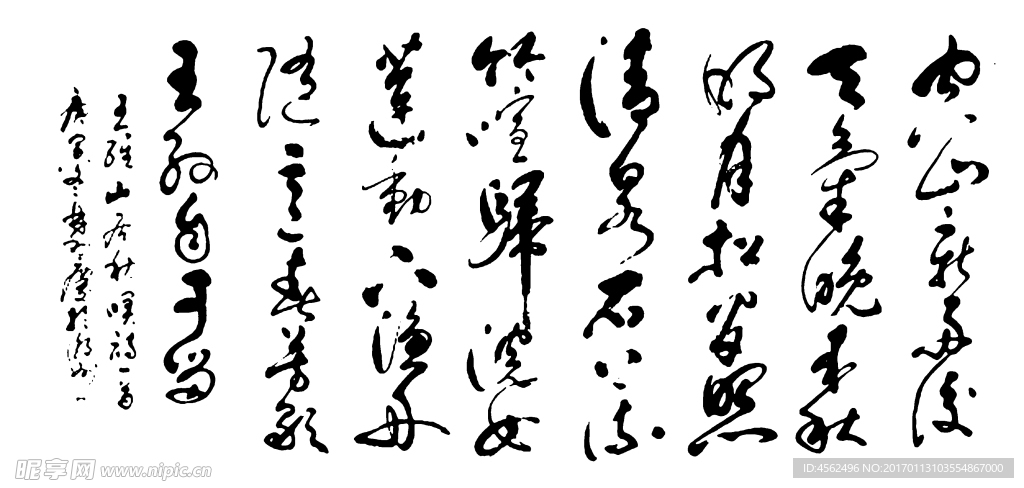 空山新雨後
天氣晚来秋
明月松間照
清泉石上流
竹喧歸浣女
蓮動下漁舟
隨意春芳歇
王孫自可留
王維山居秋暝詩一首
庚寅冬
昵享网 www.nipic.cn
ID:4562496 NO:20170113103554867000